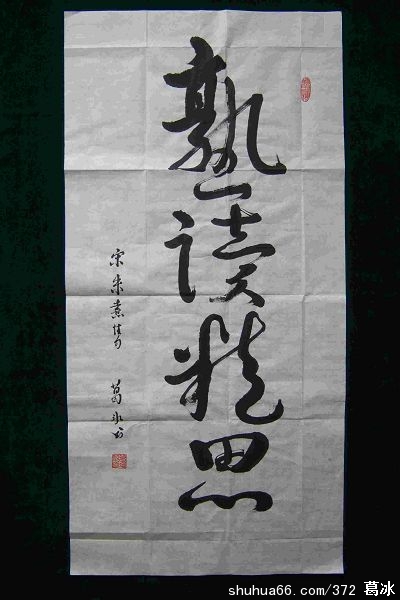 熟读精思
宋朱熹句
葛冰书
shuhua66.com/372 葛冰